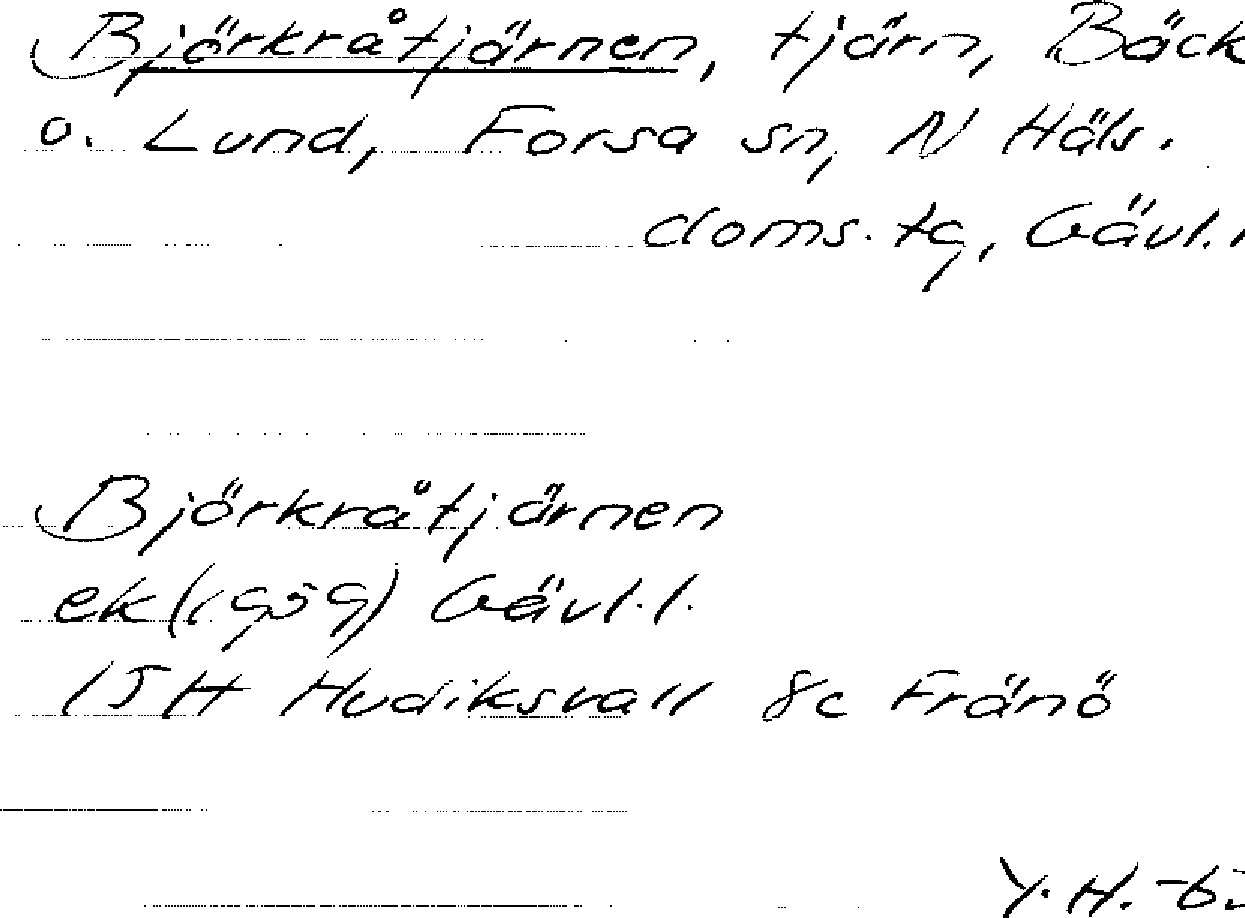 Björkråtjärnen, tjärn, Bäck
o. Lund, Forsa sn, N Häls.
doms. tg, Gävl. l
Björkråtjärnen
ek (1959) Gävl. l.
15H Hudiksvall 8c Frånö
Y. H.